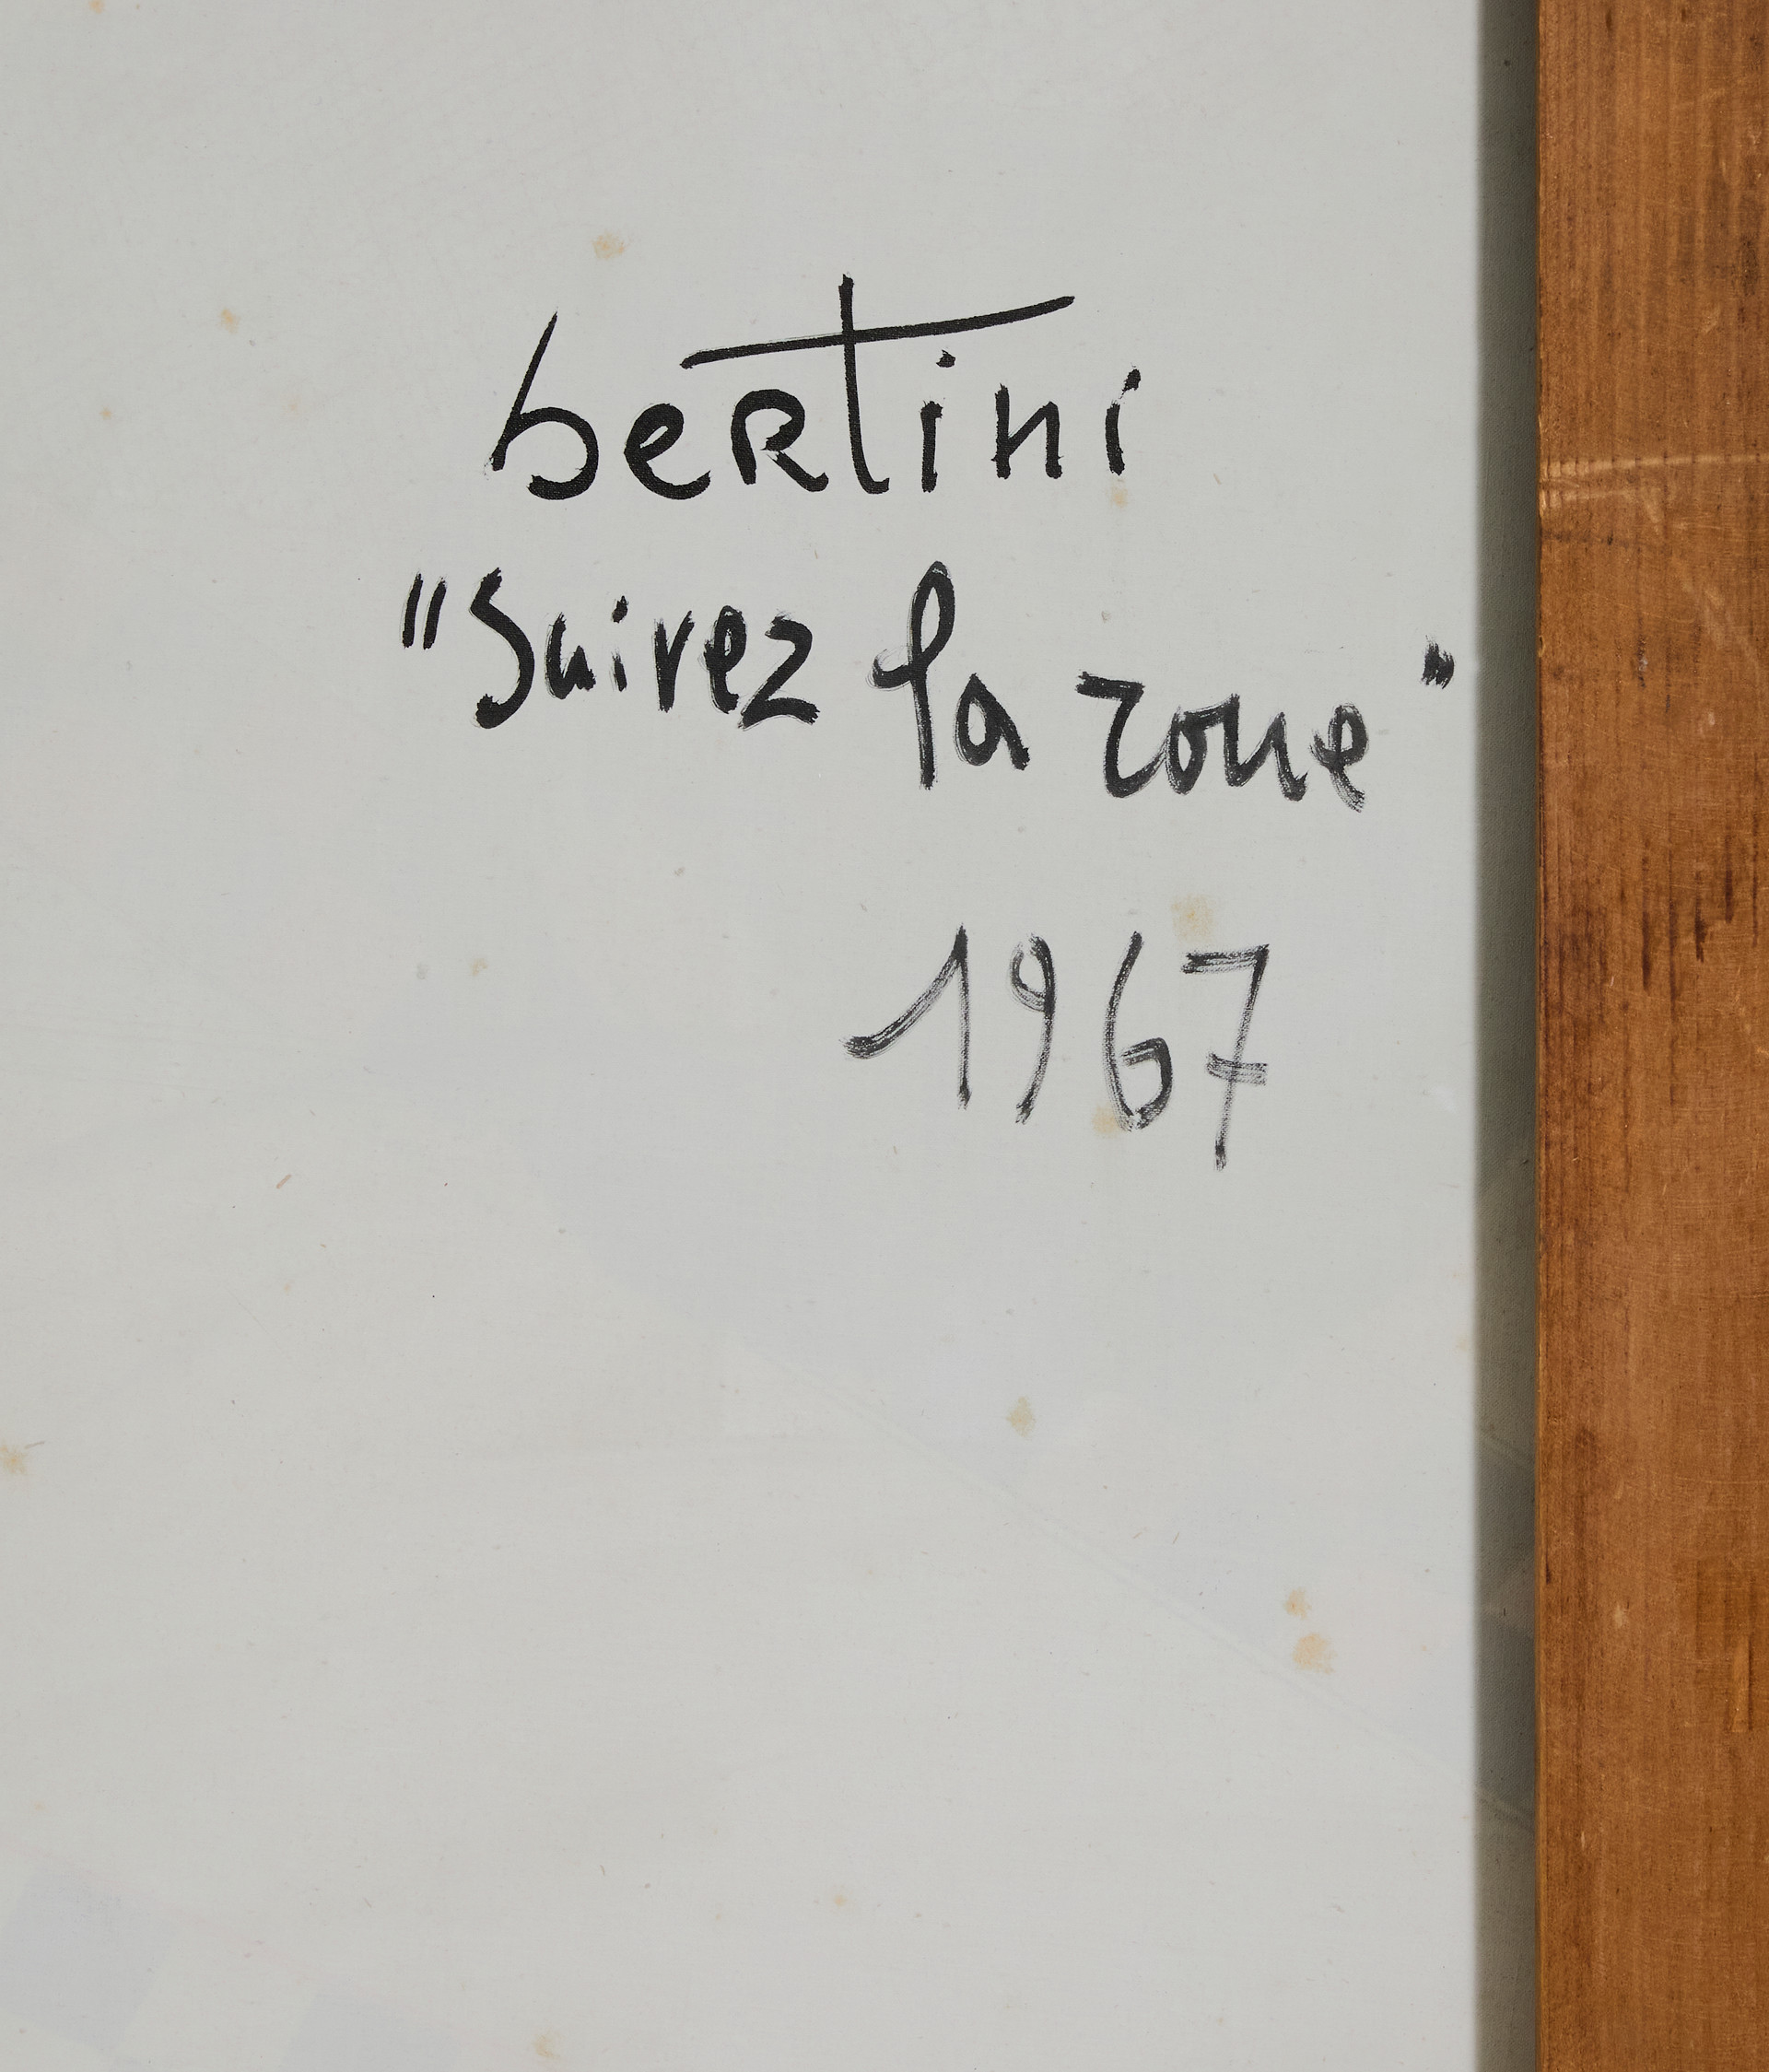 bertini
"Suivez la roue"
1967